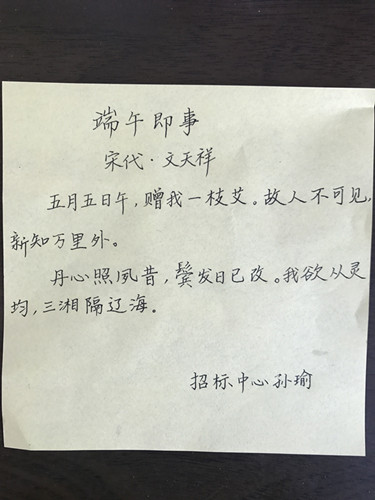 端午即事
宋代·文天祥
五月五日午，赠我一枝艾。故人不可见，
新知万里外。
丹心照夙昔，鬓发日已改。我欲从灵
均，三湘隔辽海。
招标中心孙瑜